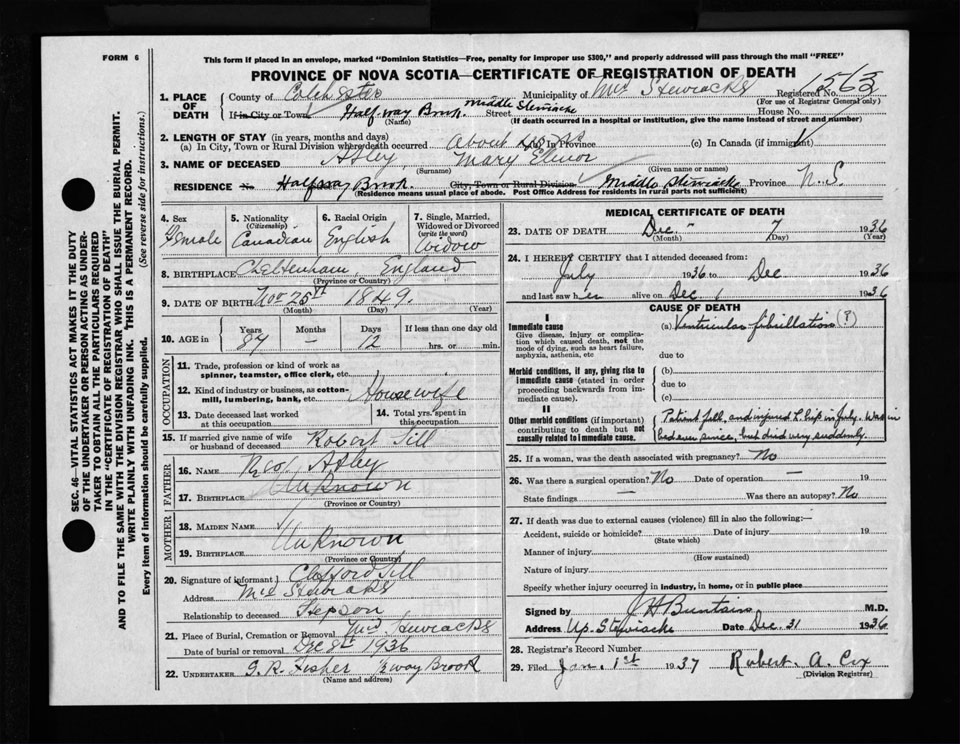 FORM 6
This form if placed in an envelope, marked "Dominion Statistics—Free, penalty for improper use $300," and properly addressed will pass through the mail "FREE"
PROVINCE OF NOVA SCOTIA—CERTIFICATE OF REGISTRATION OF DEATH
1. PLACE OF DEATH
County of Colchester Municipality of Mid Stewiacke Registered No. 1563
(For use of Registrar General only)
If in City or Town Half-way Brook Middle Stewiacke Street House No.
(Name) (If death occurred in a hospital or institution, give the name instead of street and number)
2. LENGTH OF STAY (in years, months and days)
(a) In City, Town or Rural Division where death occurred About (b) In Province (c) In Canada (if immigrant)
3. NAME OF DECEASED Astey, Mary Elinor
(Surname) (Given name or names)
RESIDENCE No. Halfway Brook City, Town or Rural Division Middle Stewiacke Province N.S.
(Residence means usual place of abode. Post Office Address for residents in rural parts not sufficient)
4. Sex Female
5. Nationality (Citizenship) Canadian
6. Racial Origin English
7. Single, Married, Widowed or Divorced (write the word) Widow
8. BIRTHPLACE Cheltenham, England
(Province or Country)
9. DATE OF BIRTH Nov 25th 1849.
(Month) (Day) (Year)
10. AGE in Years Months Days If less than one day old
87 — 12 hrs. or min.
OCCUPATION
11. Trade, profession or kind of work as spinner, teamster, office clerk, etc.
12. Kind of industry or business, as cotton-mill, lumbering, bank, etc. Housewife
13. Date deceased last worked at this occupation
14. Total yrs. spent in this occupation
15. If married give name of wife or husband of deceased Robert Till
FATHER
16. NAME Astey
17. BIRTHPLACE Unknown
(Province or Country)
MOTHER
18. MAIDEN NAME
19. BIRTHPLACE Unknown
(Province or Country)
20. Signature of informant Clifford Till
Address Mid Stewiacke
Relationship to deceased Stepson
21. Place of Burial, Cremation or Removal Mid Stewiacke
Date of burial or removal Dec 8th 1936
22. UNDERTAKER G. R. Fisher ½way Brook
(Name and address)
MEDICAL CERTIFICATE OF DEATH
23. DATE OF DEATH Dec. - 7 1936
(Month) (Day) (Year)
24. I HEREBY CERTIFY that I attended deceased from:
July 1936 to Dec. 1936
and last saw her alive on Dec. 1 1936
CAUSE OF DEATH
I
Immediate cause
Give disease, injury or complication which caused death, not the mode of dying, such as heart failure, asphyxia, asthenia, etc
(a) Ventricular fibrillation (?)
due to
Morbid conditions, if any, giving rise to immediate cause (stated in order proceeding backwards from immediate cause).
(b)
due to
(c)
II
Other morbid conditions (if important) contributing to death but not causally related to immediate cause.
Patient fell, and injured L. hip in July. Was in
bed ever since, but died very suddenly.
25. If a woman, was the death associated with pregnancy? No
26. Was there a surgical operation? No Date of operation — 19
State findings — Was there an autopsy? No
27. If death was due to external causes (violence) fill in also the following:—
Accident, suicide or homicide? Date of injury 19
(State which)
Manner of injury
(How sustained)
Nature of injury
Specify whether injury occurred in industry, in home, or in public place
Signed by J H Buntain M.D.
Address Up. Stewiacke Date Dec. 31 1936
28. Registrar's Record Number
29. Filed Jan. 1st 1937 Robert. A. Cox
(Division Registrar)
SEC. 46—VITAL STATISTICS ACT MAKES IT THE DUTY
OF THE UNDERTAKER OR PERSON ACTING AS UNDER-
TAKER TO OBTAIN ALL THE PARTICULARS REQUIRED
IN THE "CERTIFICATE OF REGISTRATION OF DEATH"
AND TO FILE THE SAME WITH THE DIVISION REGISTRAR WHO SHALL ISSUE THE BURIAL PERMIT.
WRITE PLAINLY WITH UNFADING INK. THIS IS A PERMANENT RECORD.
Every item of information should be carefully supplied. (See reverse side for instructions.)